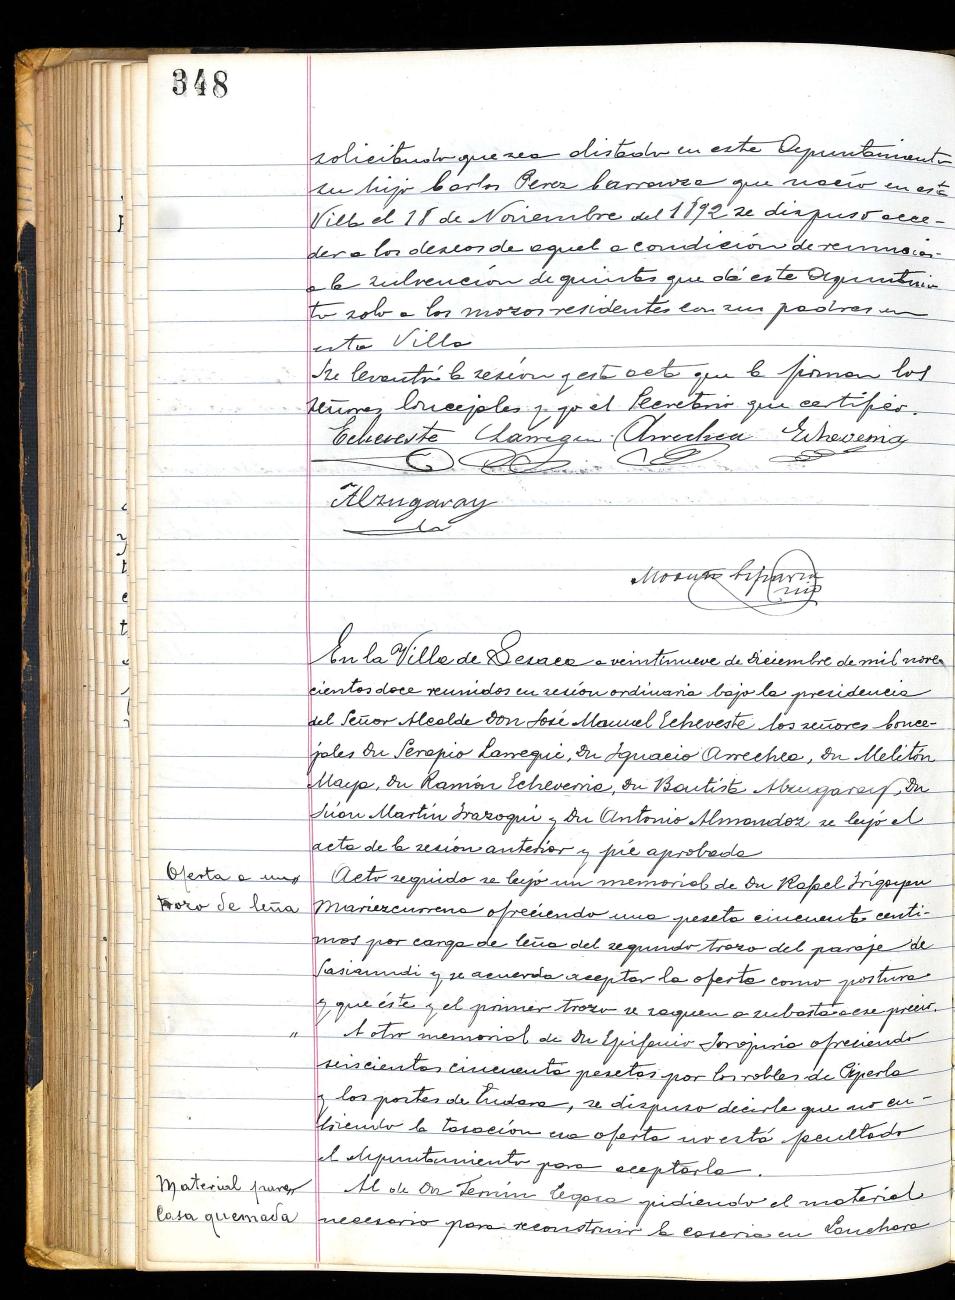 348
solicitando que sea alistado en este Ayuntamiento
su hijo Carlos Perez Carranza que nació en esta
Villa el 18 de Noviembre del 1892 se dispuso acce-
der a los deseos de aquel a condición de renunciar
a la subvención de quintas que dá este Ayuntamien
to solo a los mozos residentes con sus padres en
esta Villa
Se levantó la sesión y esta acta que la firman los
señores Concejales y yo el Secretario que certifico.
Echeveste Larregui Arrechea Echeverria
Alzugaray
En la Villa de Lesaca a veintinueve de Diciembre de mil nove-
cientos doce reunidos en sesión ordinaria bajo la presidencia
del Señor Alcalde Don José Manuel Echeveste los señores Conce-
jales Dn Serapio Larregui, Dn Ignacio Arrechea, Dn Melitón
Maya, Dn Ramón Echeverria, Dn Bautista Alzugaray, Dn
Juan Martín Irazoqui y Dn Antonio Almandoz se leyó el
acta de la sesión anterior y fué aprobada
Oferta a un
trozo de leña
Acto seguido se leyó un memorial de Dn Rafael Irigoyen
Mariezcurrena ofreciendo una peseta cincuenta centi-
mos por carga de leña del segundo trozo del paraje de
y se acuerda aceptar la oferta como postura
y que éste y el primer trozo se saquen a subasta a ese precio.
"
A otro memorial de Dn Epifanio ofreciendo
seiscientas cincuenta pesetas por los robles de
y los postes de Endara, se dispuso decirle que no cu-
briendo la tasación esa oferta no está facultado
el Ayuntamiento para aceptarla.
Material para
Casa quemada
Al de Dn Fermín Egozca pidiendo el material
necesario para reconstruir la caseria en